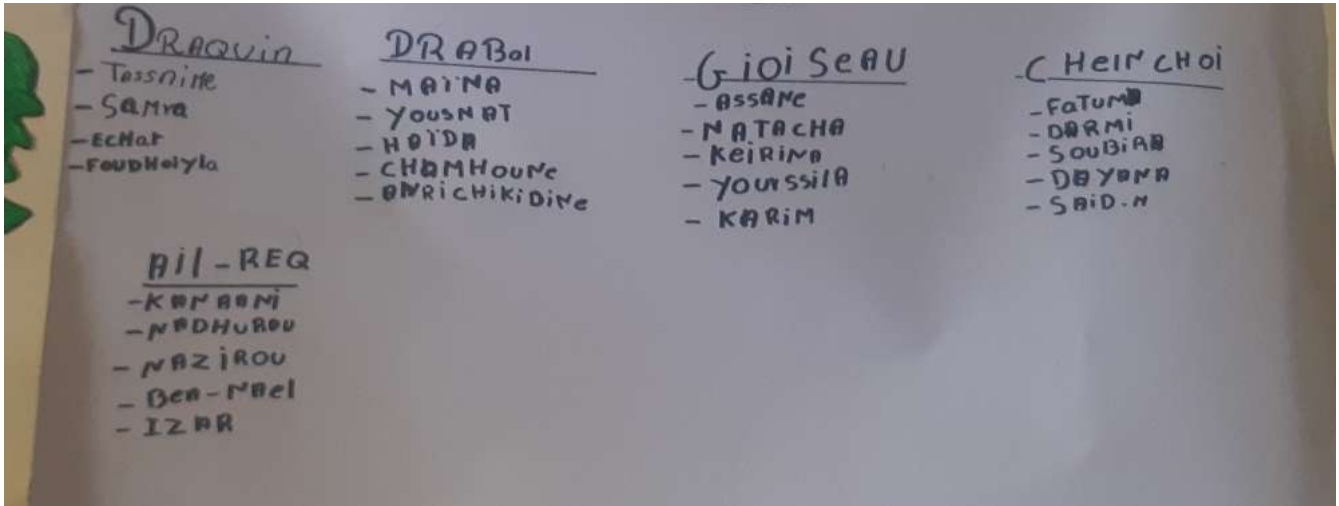 DRAQUIN
- Tassnime
- Samra
- ECHAT
- FOUDHaIyla
DRABol
- MAÏNA
- YOUSNAT
- HAÏDA
- CHAMHOUNe
- ANRiCHiKiDiNe
- GioiSeAU
- ASSANe
- NATACHA
- KeiRiNA
- YOURSSilA
- KARiM
- CHeiNCHOi
- FATUMA
- DARMi
- SOUBiRA
- DAYANA
- SAiD.N
Ail-REQ
- KANAANi
- NADHUROU
- NAZiROU
- Ben-NAel
- IZAR